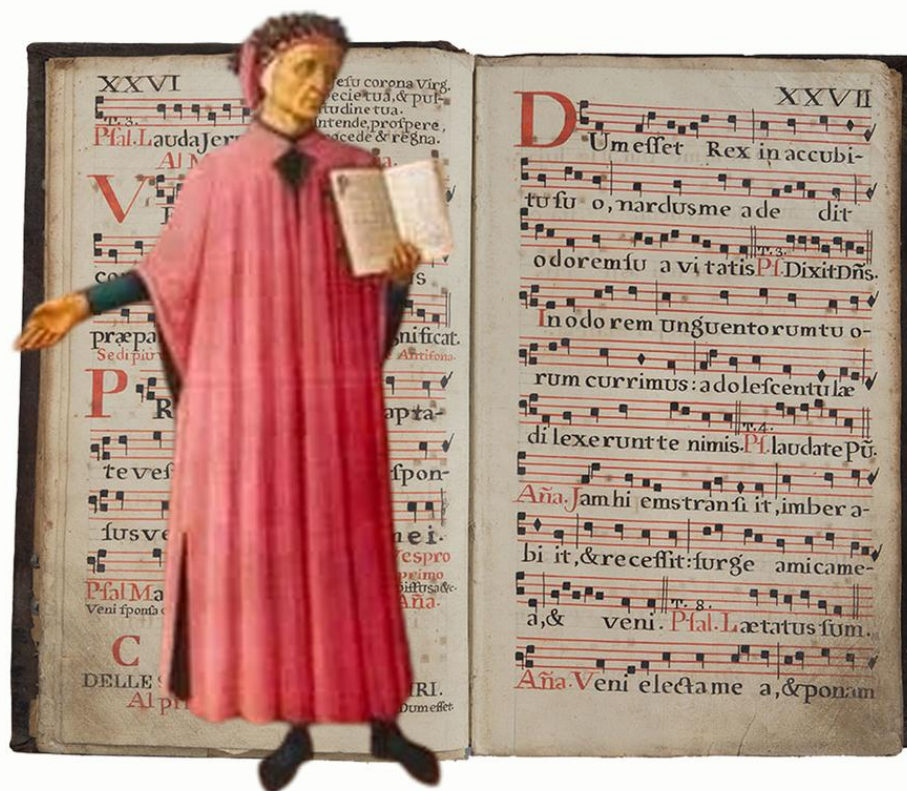 XXVI
eſu corona Virg.
ecie tua, & pul-
tudine tua.
ntende, proſpere,
ocede & regna.
T. 3.
Pſal. Lauda Jer
Al
V
præpa
gnificat.
Sedi più
Antifona
P R
apta-
te veſ
ſpon-
ſus ve
mei.
Veſpro
primo
Pſal M
diffusa &c.
Veni ſponſa
Aña.
C
DELLE
IRI.
Al pr
Dum eſſet
XXVII
DUm eſſet Rex in accubi-
tu ſu o, nardus me a de dit
odorem ſu a vi tatis T. 3. Pſ. Dixit Dñs.
In odo rem unguentorum tu o-
rum currimus: adoleſcentulæ
di lexerunt te nimis. T. 4. Pſ. laudate Pũ.
Aña. Jam hi ems tranſi it, imber a-
bi it, & receſſit: ſurge amica me-
a, & veni. T. 8. Pſal. Lætatus ſum.
Aña. Veni electa me a, & ponam